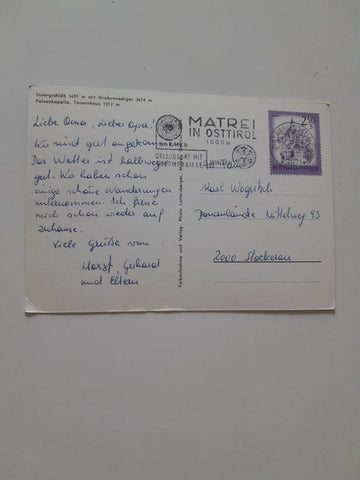 Innergschlöß 1691 m mit Großvenediger 3674 m
Felsenkapelle, Tauernhaus 1512 m
Liebe Oma, Lieber Opa!
Wir sind gut angekommen.
Das Wetter ist halbwegs
gut. Wir haben schon
einige schöne Wanderungen
unternommen. Ich freue
mich schon wieder auf
zuhause.
Viele Grüße von
Horst, Gerhard
und Eltern
MATREI
IN OSTTIROL
1000 m
SOMMER
URLAUBSORT MIT
WINTER
2.50
Karl
Donaulände Mittelweg 93
2000 Stockerau